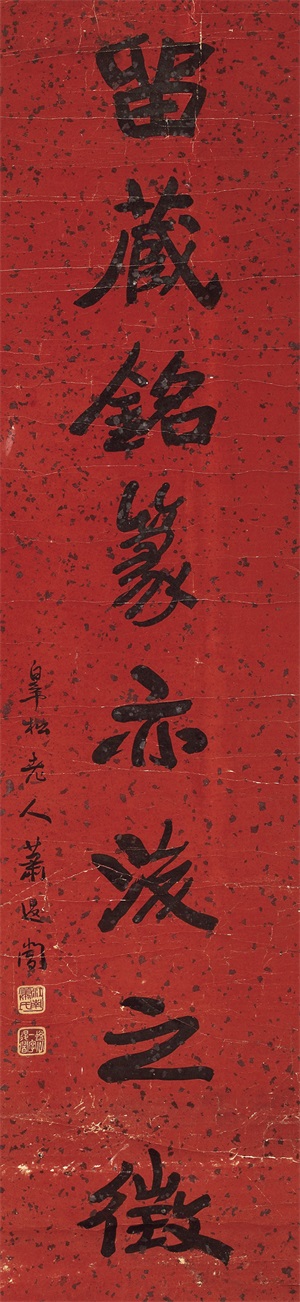 留藏銘篆亦之徵
皋松老人蕭退闇